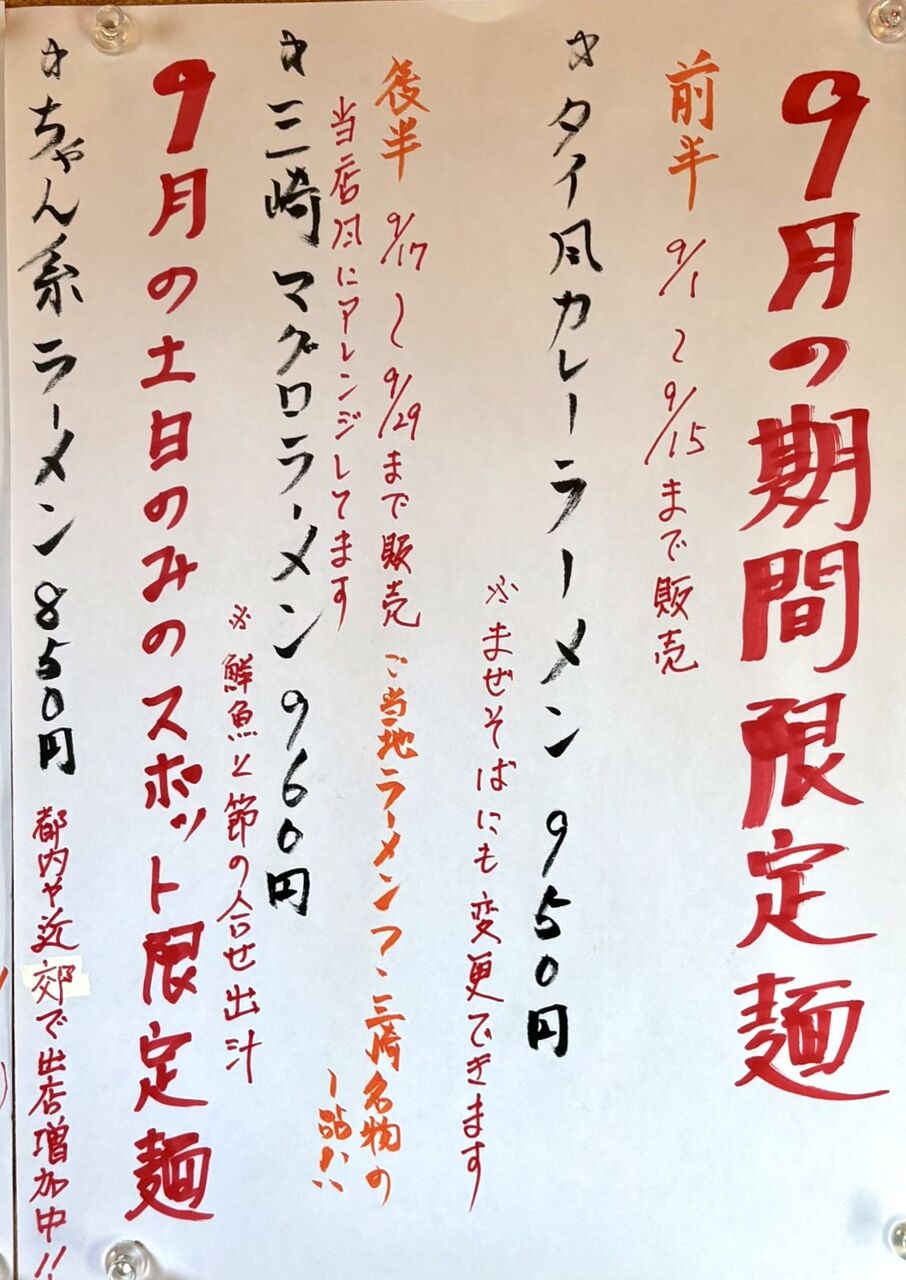 9月の期間限定麺
前半 9/1〜9/15まで販売
☆タイ風カレーラーメン 950円
※まぜそばにも変更できます
後半 9/17〜9/29まで販売 ご当地ラーメン 三崎名物の
一品!!
当店風にアレンジしてます
☆三崎マグロラーメン 960円
※鮮魚と節の合せ出汁
9月の土日のみのスポット限定麺
☆ちゃん系ラーメン 850円 都内や近郊で出店増加中!!